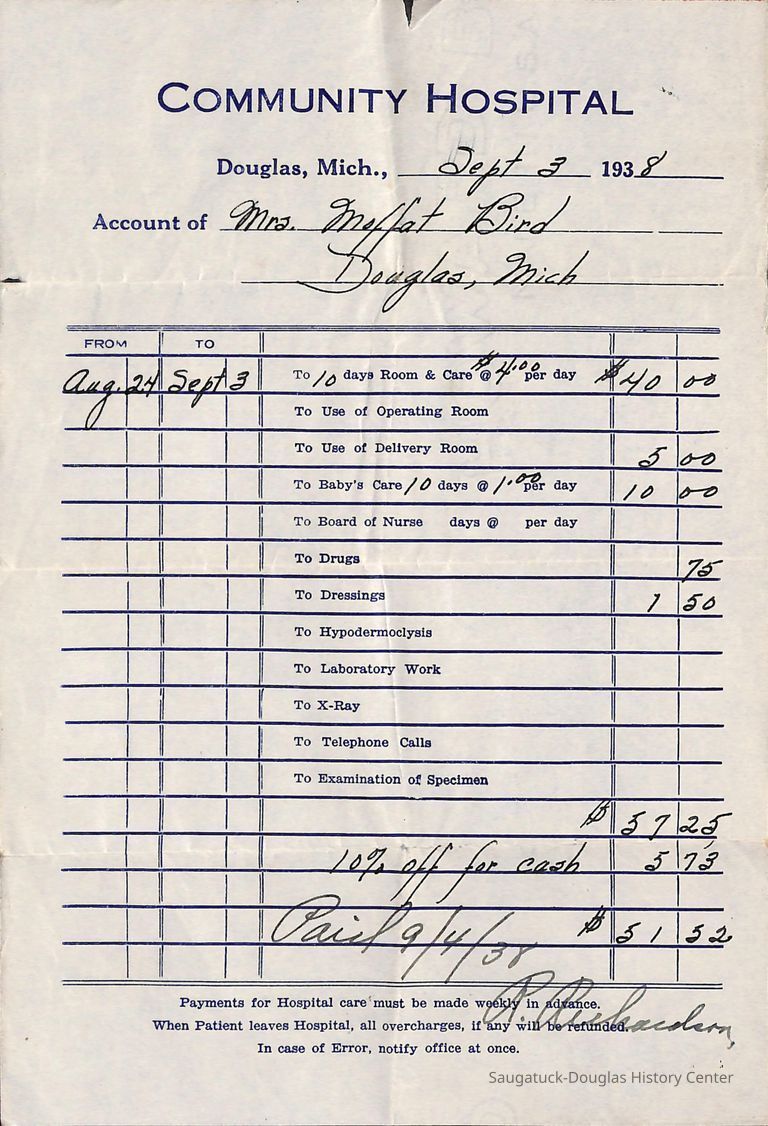 COMMUNITY HOSPITAL
Douglas, Mich., Sept 3 1938
Account of Mrs. Moffat Bird
Douglas, Mich
FROM TO
Aug. 24 Sept 3 To 10 days Room & Care @ $4.00 per day $40 00
To Use of Operating Room
To Use of Delivery Room 5 00
To Baby's Care 10 days @ 1.00 per day 10 00
To Board of Nurse days @ per day
To Drugs 75
To Dressings 1 50
To Hypodermoclysis
To Laboratory Work
To X-Ray
To Telephone Calls
To Examination of Specimen
$ 57 25
10% off for cash 5 73
Paid 9/4/38 $ 51 52
R. Richardson,
Payments for Hospital care must be made weekly in advance.
When Patient leaves Hospital, all overcharges, if any will be refunded.
In case of Error, notify office at once.
Saugatuck-Douglas History Center